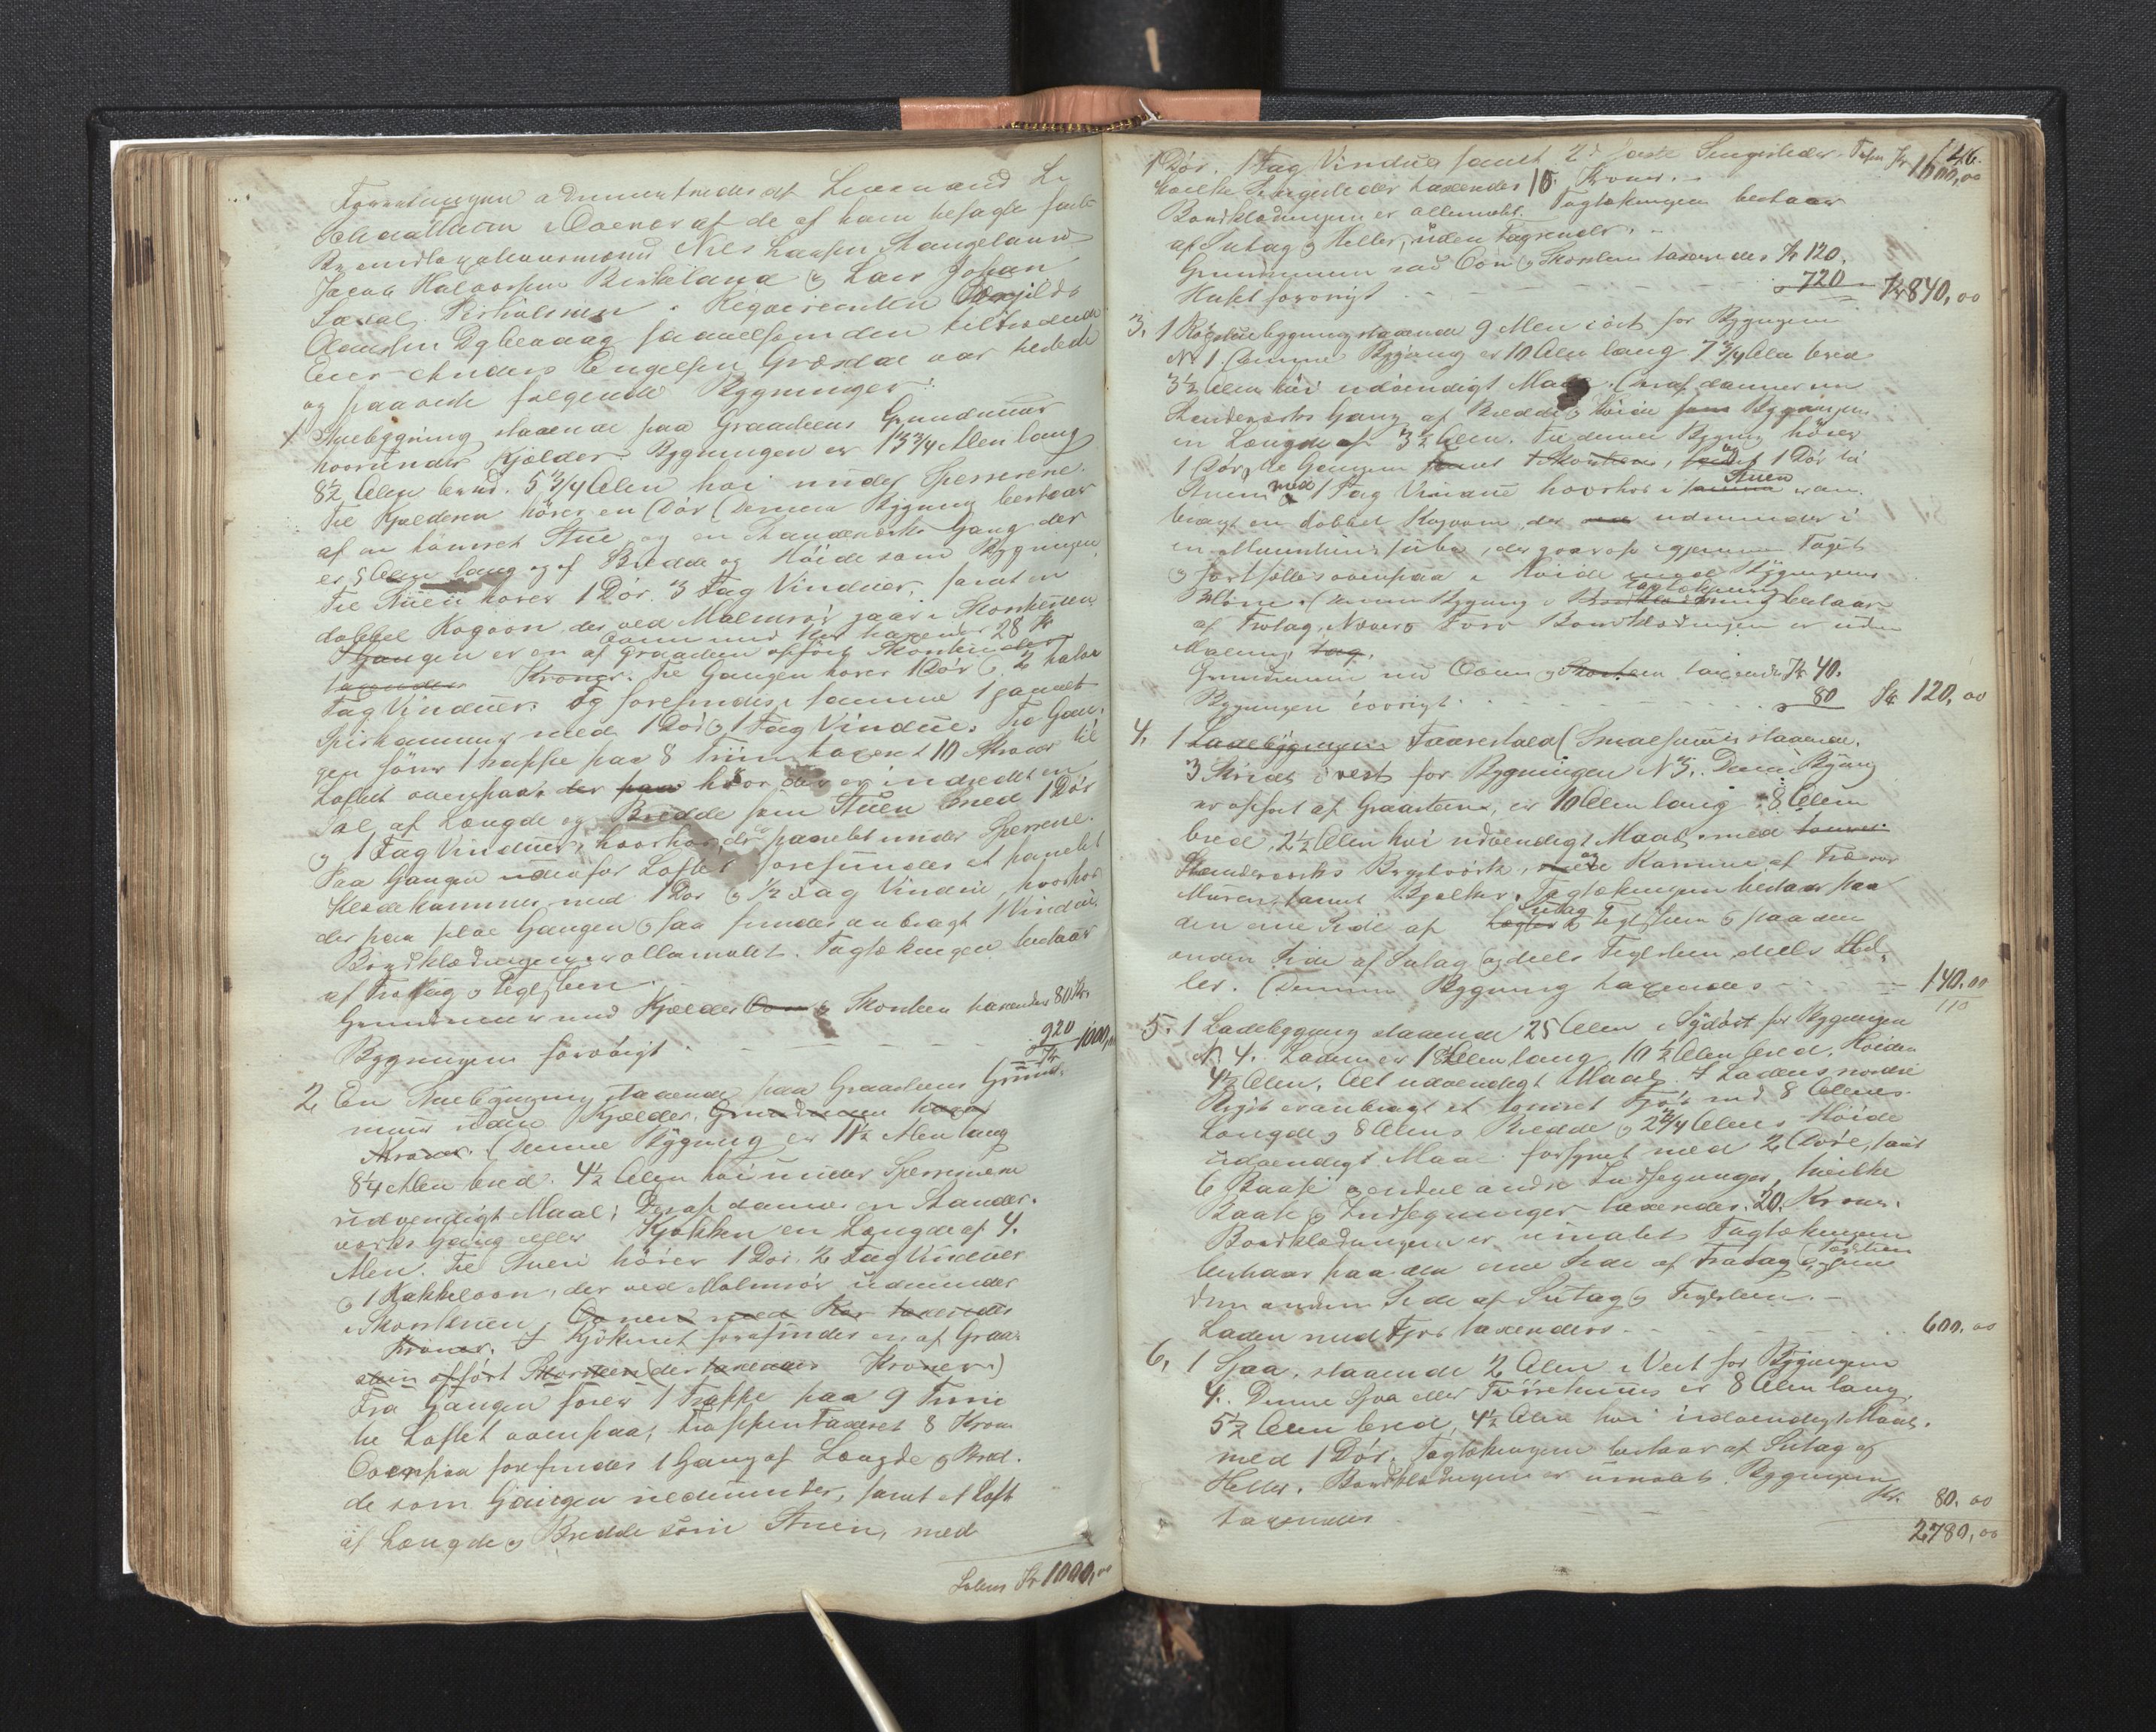 Forretningen administreredes af Lensmand L.
Schaathun i Overvær af de af ham befagte faste
Brandtaxationsmænd Nils Larsen Stangeland
Jacob Halvorsen Birkeland og Lars Johan
Requirenten
Olausen samt som den tilstedeværende
Eier Anders Engelsen var tilstede
og paaviste følgende Bygninger:
1 Stuebygning staaende paa Graasteens Grundmuur
hvorunder Kjælder. Bygningen er 13 3/4 Alen lang
8 1/2 Alen bred. 5 3/4 Alen høi under Sperrerne.
Til Kjælderen hører en Dør. Denne Bygning bestaar
af en tømret Stue og en Standerværks Gang der
er 5 Alen lang og af Bredde og Høide som Bygningen
Til Stuen hører 1 Dør. 3 Fag Vinduer, samt en
dobbel Kogovn, der ved Malmrør gaar i Skorstenen
Ovnen med Rør taxeres 28 Kr
I Gangen er en af Graasten opført Skorsten der
taxeredes Kroner. Til Gangen hører 1 Dør og 2 halve
Fag Vinduer. og forefindes i samme 1 panelt
Spisekammer med 1 Dør og 1 Fag Vindue. Fra Gan-
gen fører 1 Trappe paa 8 Trin taxeret 10 Kroner til
Loftet ovenpaa, der paa hvor der er indredet en
Sal af Længde og Bredde som Stuen med 1 Dør
og 1 Fag Vinduer, hvorhos der panelet under Sperrene.
Paa Gangen udenfor Loftet forefindes et panelet
Klædekammer med 1 Dør og 1/2 Fag Vindue, hvorhos
der paa selve Gangen ogsaa findes anbragt 1 Vindue
Bordklædningen er oliemalet. Tagtækningen bestaar
af Trotag og Teglsten.
Grundmuren med Kjælder Ovn og Skorsten taxeredes 80 Kr.
Bygningen forøvrigt - - - 920 1000,00
Kr
2, En Stuebygning staaende paa Graasteens Grund-
muur uden Kjælder. Grundmuren taxeret
Kroner. Denne Bygning er 11 1/2 Alen lang
8 1/4 Alen bred. 4 1/2 Alen høi under Sperrerne
udvendigt Maal; Deraf danner en Stander-
værks Gang eller Kjøkken en Længde af 4.
Alen. Til Stuen hører 1 Dør. 2 Fag Vinduer
og 1 Kakkelovn, der ved Malmrør udmunder
i Skorstenen. Ovnen med Rør taxeredes
Kroner. I Kjøkknet forefindes en af Graa-
sten opført Skorsten (der taxeredes Kroner)
Fra Gangen fører 1 Trappe paa 9 Trin
til Loftet ovenpaa, Trappen Taxeret 8 Kron
Ovenpaa forefindes 1 Gang af Længde og Bred-
de som Gangen nedenunder, samt et Loft
af Længde og Bredde som Stuen, med
Kr 1000,00
126.
1 Dør. 1 Fag Vindue samt 2de faste Sengesteder Kr 1000,00
hvilke Sengesteder taxeredes 10. Kroner.
Bordklædningen er oliemalet. Tagtækningen bestaar
af Sutag og Heller, uden Tagrender.
Grundmuren med Ovn og Skorsten taxeredes Kr 120.
Huset forøvrigt - - - 720 Kr 840,00
3. 1 Røgstuebygning staaende 9 Alen i øst for Bygningen
No 1. Denne Bygning er 10 Alen lang 7 3/4 Alen bred
3 1/2 Alen høi udvendigt Maal. Deraf danner en
Standerværks Gang af Bredde og Høide som Bygningen
en Længde af 3 1/2 Alen. Til denne Bygning hører
1 Dør til Gangen samt 1 Skorsten, og 1 Dør til
Stuen med 1 Fag Vindue hvorhos i Stuen er an-
bragt en dobbel Kogovn, der udmunder i
en Muurstens pibe, der gaar op igjennem Taget
og fortsættes ovenpaa i Høide med Bygningens
Møne. Denne Bygnings Tagtækning bestaar
af Trotag, Næver og Torv Bordklædningen er uden
Maling.
Grundmuren med Ovn og Skorsten taxeredes Kr 40.
Bygningen iøvrigt - - - 80 Kr. 120,00
4. 1 Ladebygning Faarestald (Smalehuus) staaende.
3 Skridt i vest for Bygningen No 3. Denne Bygning
er opført af Graasten, er 10 Alen lang 8 Alen
bred, 2 1/2 Alen høi udvendigt Maal. med
Standerværks Brystværk, og Karme af Træ over
Muren, samt Bjælker. Tagtækningen bestaar paa
den ene Side af Sutag og Teglsten og paa den
anden Side af Sutag og deels Teglsten deels Hel-
ler. Denne Bygning taxeredes - - - 140,00
110
5. 1 Ladebygning staaende 25 Alen i Sydøst for Bygningen
No 4. Laden er 18 Alen lang, 10 1/2 Alen bred. Høiden
4 1/2 Alen. Alt udvendigt Maal. I Ladens nordre
er anbragt et tømret Fjøs med 8 Alens
Længde og 8 Alens Bredde og 2 3/4 Alens Høide
udvendigt Maal forsynet med 2 Døre, samt
6 Baase og endeel andre Indhegninger, hvilke
Baase og Indhegninger taxeredes 20. Kroner.
Bordklædningen er umalet Tagtækningen
bestaar paa den ene Side af Trotag og Teglsten
den anden Side af Sutag og Teglsten.
Laden med Fjøs taxeredes - - - 600,00
6, 1 Sjaa, staaende 2 Alen i Vest for Bygningen
4. Denne Sjaa eller Tørrehuus er 8 Alen lang.
5 1/2 Alen bred, 4 1/2 Alen høi udvendigt Maal.
med 1 Dør. Tagtækningen bestaar af Sutag og
Heller. Bordklædningen er umalet. Bygningen
taxeredes - - - Kr. 80,00
2780,00